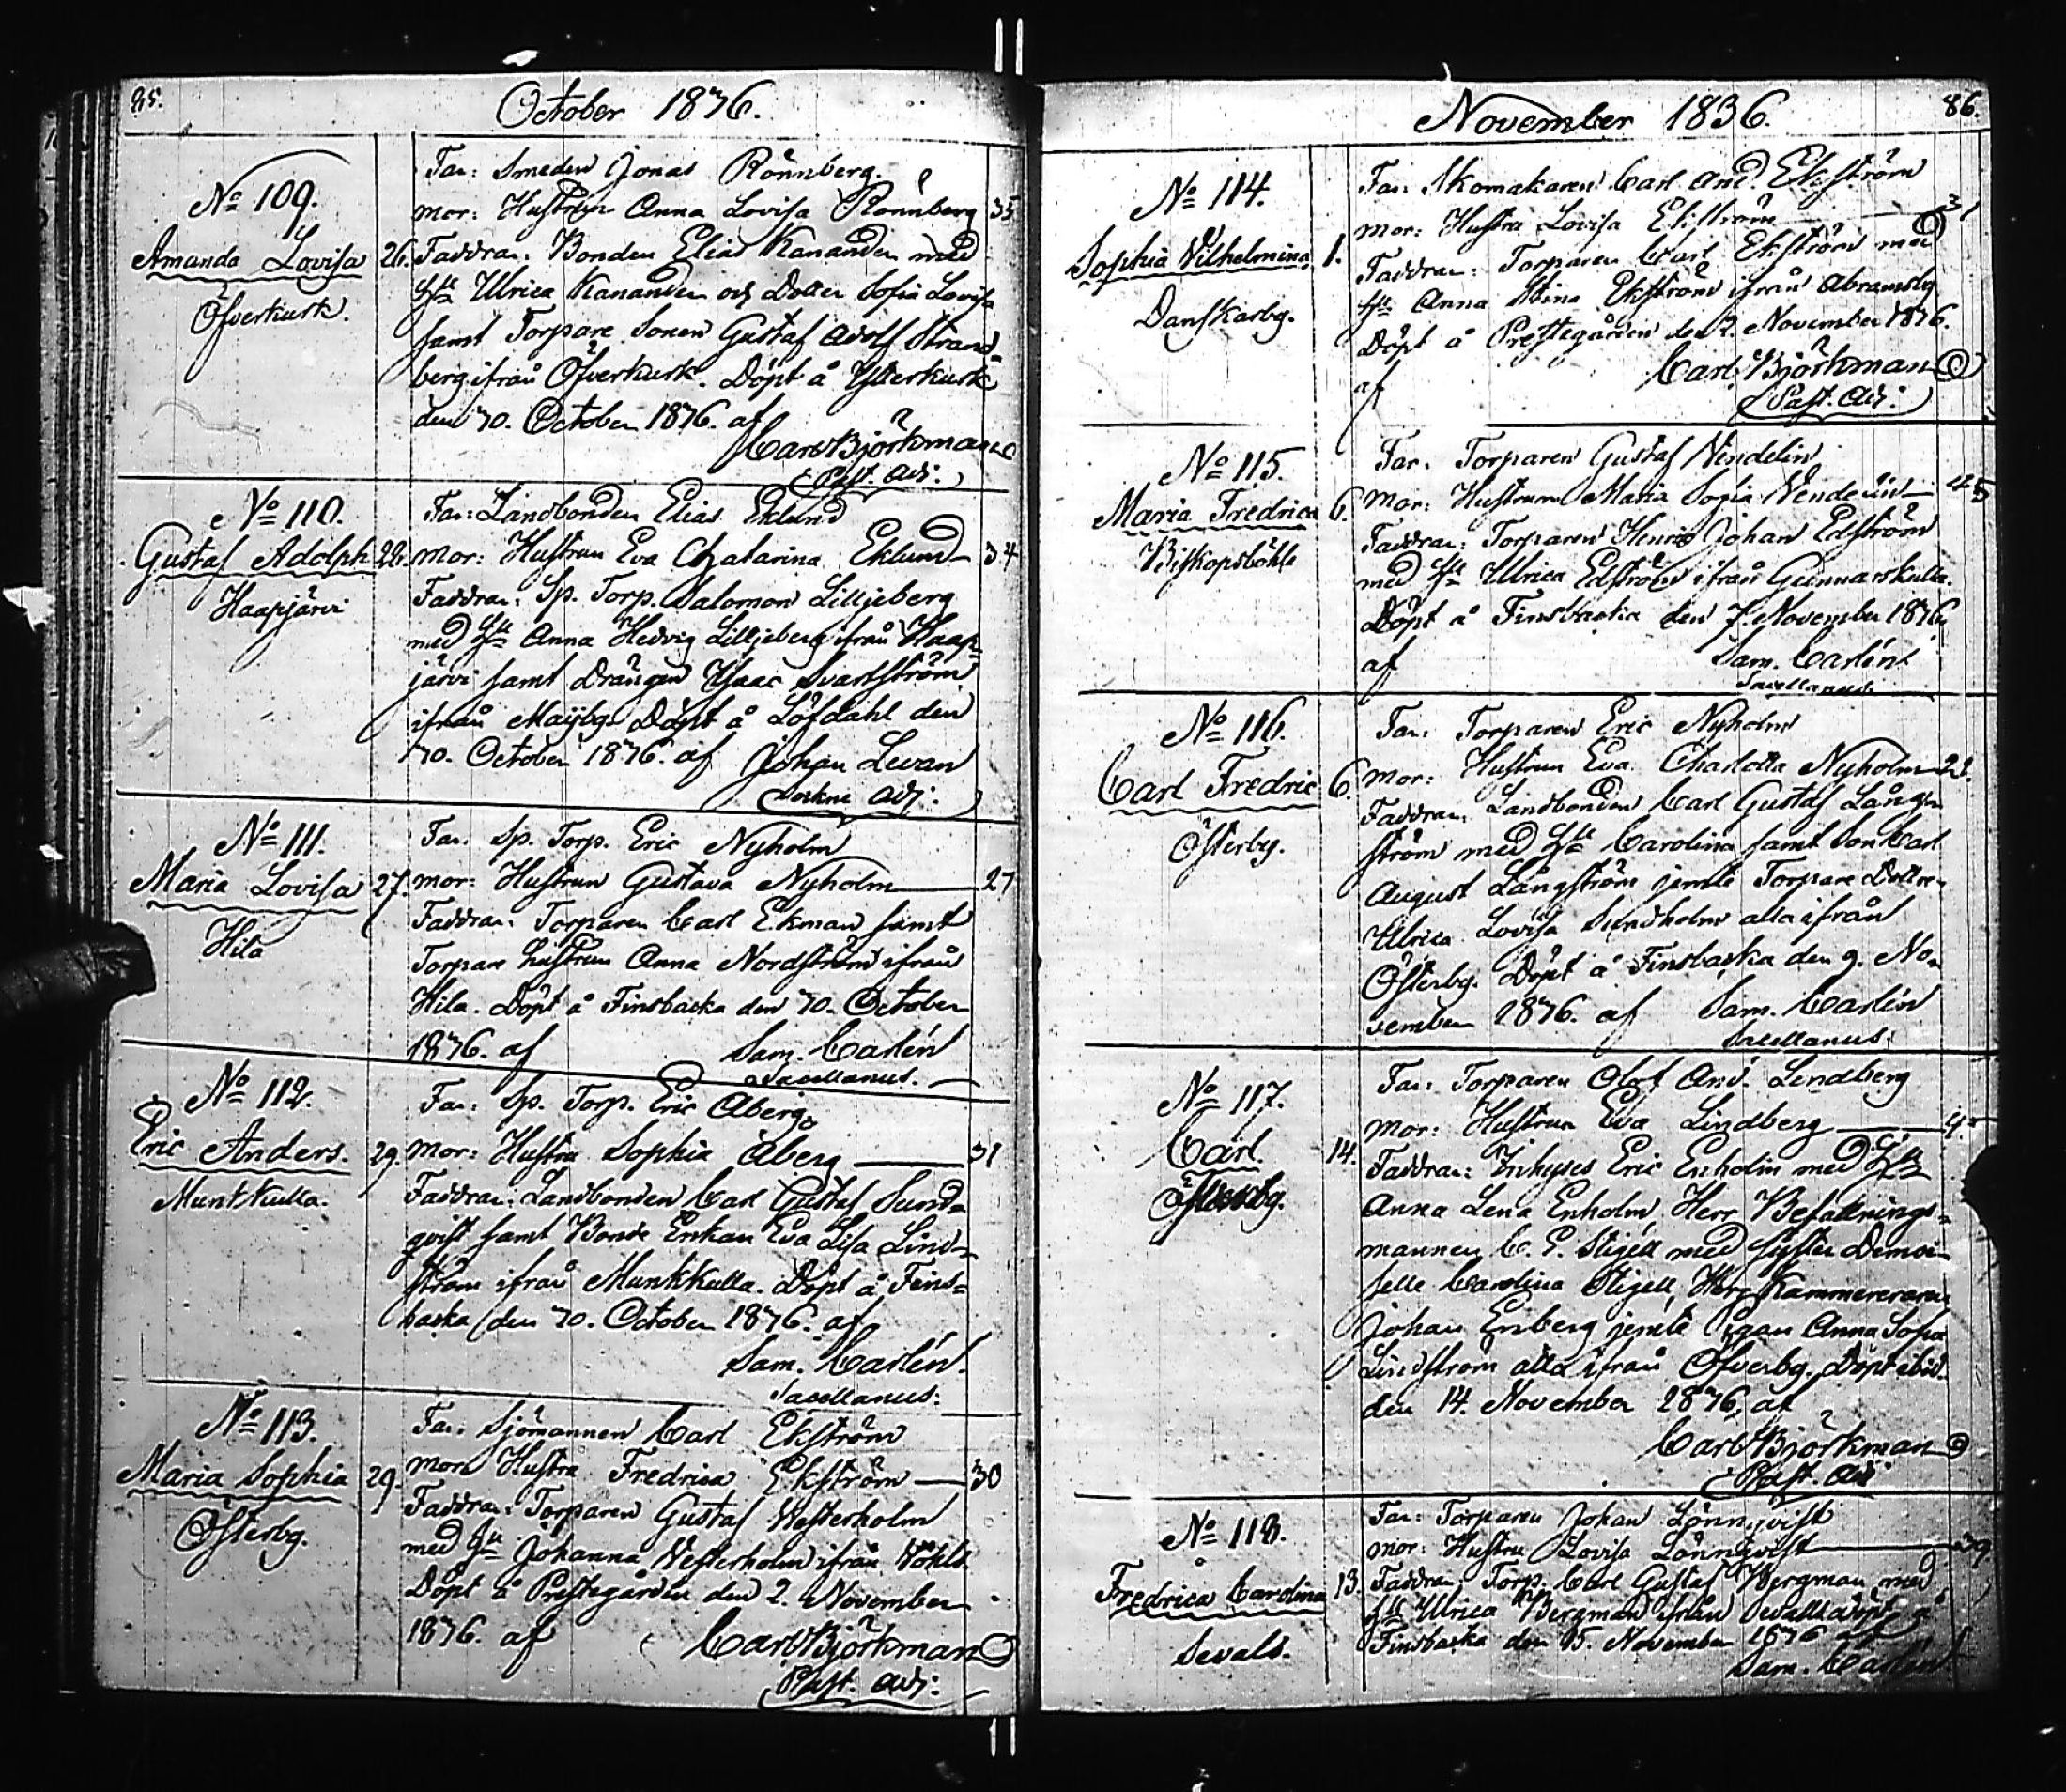 85.
October 1836.
No 109.
Amanda Lovisa 26.
Öfverkurk.
Far: Smeden Jonas Rönnberg.
mor: Hustrun Anna Lovisa Rönnberg 35
Faddrar: Bonden Elias Kanander med
Hu Ulrica Kanander och Dotter Sofia Lovisa
samt Torpare Sonen Gustaf Adolf Strand=
berg ifrån Öfverkurk. Döpt å Ytterkurk
den 30. October 1836. af
Carl Björkman
Past. Adj:
No 110.
Gustaf Adolph 22.
Haapjärvi
Far: Landbonden Elias Eklund
mor: Hustrun Eva Chatarina Eklund 34
Faddrar: Sp. Torp. Salomon Lilljeberg
med Hu Anna Hedvig Lilljeberg ifrån Haap=
järvi samt Drängen Isaac Svartström
ifrån Majbg. Döpt å Löfdahl den
30. October 1836. af Johan Levan
Sockne Adj:
No 111.
Maria Lovisa 27.
Hila
Far: Sp. Torp. Eric Nyholm
mor: Hustrun Gustava Nyholm 27
Faddrar: Torparen Carl Ekman samt
Torpare hustrun Anna Nordström ifrån
Hila. Döpt å Finsbacka den 30. October
1836. af Sam. Carlén
Sacellanus.
No 112.
Eric Anders. 29.
Munkkulla.
Far: Sp. Torp. Eric Åberg
mor: Hustru Sophia Åberg 31
Faddrar: Landbonden Carl Gustaf Sund=
qvist samt Bonde Enkan Eva Lisa Lind=
ström ifrån Munkkulla. Döpt å Fins=
backa den 30. October 1836. af
Sam. Carlén.
Sacellanus:
No 113.
Maria Sophia 29.
Österbg.
Far: Sjömannen Carl Ekström
mor: Hustru Fredrica Ekström 30
Faddrar: Torparen Gustaf Westerholm
med Hu Johanna Westerholm ifrån
Döpt å Prestegården den 2. November
1836. af Carl Björkman
Past. Adj:
November 1836. 86.
No 114.
Sophia Vilhelmina 1.
Danskarbg.
Far: Skomakaren Carl And. Ekström
mor: Hustru Lovisa Ekström 31
Faddrar: Torparen Carl Ekström med
Hu Anna Stina Ekström ifrån Abramsbg
Döpt å Prestegården den 2. November 1836.
af Carl Björkman
Past. Adj:
No 115.
Maria Fredrica 6.
Biskopsböhle
Far: Torparen Gustaf Vendelin
mor: Hustrun Maria Sofia Vendelin 45
Faddrar: Torparen Henric Johan Edström
med Hu Ulrica Edström ifrån Gunnarskulla.
Döpt å Finsbacka den 7. November 1836
af Sam. Carlén
Sacellanus.
No 116.
Carl Fredric 6.
Österbg.
Far: Torparen Eric Nyholm
mor: Hustrun Eva Charlotta Nyholm
Faddrar: Landbonden Carl Gustaf Lång=
ström med Hu Carolina samt Son Carl
August Långström jemte Torpare Dottren
Ulrica Lovisa Sundholm alla ifrån
Österbg. Döpt å Finsbacka den 9. No=
vember 1836. af Sam. Carlén
Sacellanus:
No 117.
Carl. 14.
Far: Torparen Olof And. Lindberg
mor: Hustrun Eva Lindberg
Faddrar: Inhyses Eric Enholm med Hu
Anna Lena Enholm, Herr Befallnings=
mannen C. E. Stigell med syster Demoi=
selle Carolina Stigell, Herr Kammereraren
Johan Enberg jemte Pigan Anna Sofia
Lindström alla ifrån Öfverbg. Döpt ibid.
den 14. November 1836, af
Carl Björkman
Past. Adj
No 118.
Fredrica Carolina 13.
Sevals.
Far: Torparen Johan Lönnqvist
mor: Hustru Lovisa Lönnqvist 39
Faddrar: Torp. Carl Gustaf Bergman med
Hu Ulrica Bergman ifrån Sevalls döpt å
Finsbacka den 15. November 1836 af
Sam. Carlén